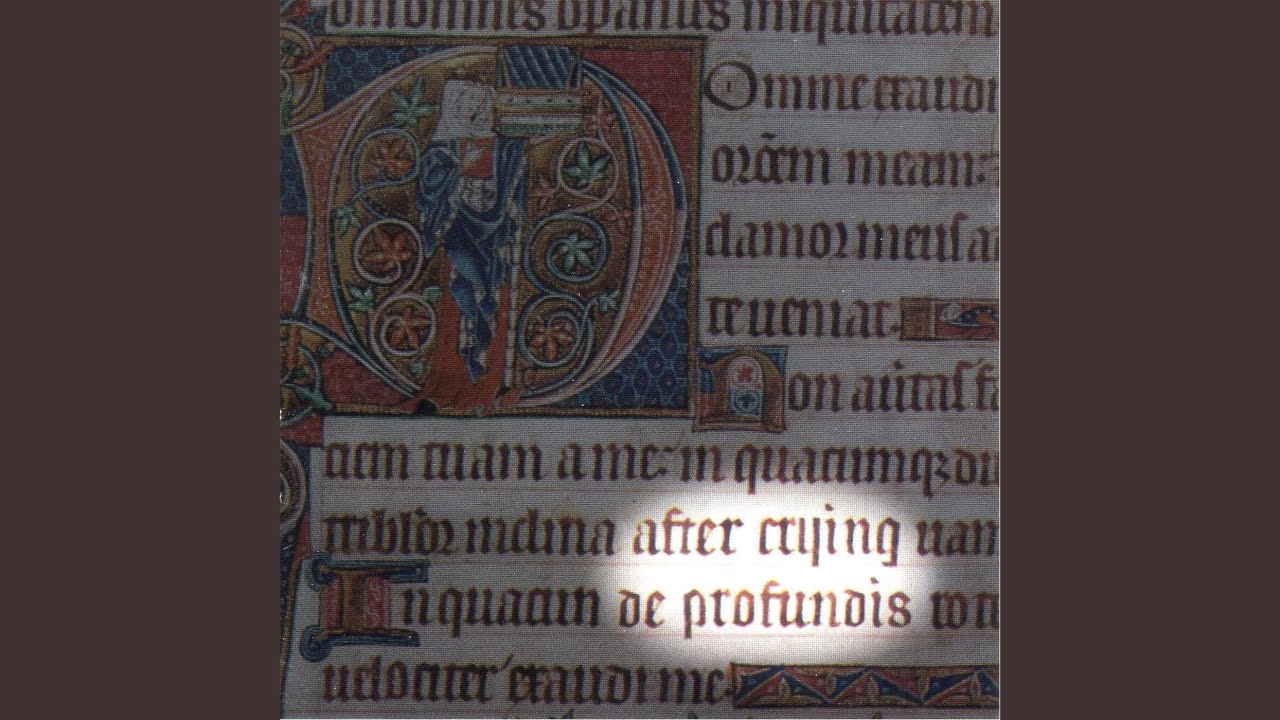 omnes operatius iniquitatem
Domine exaudi
orõem meam:
clamor meus a
te ueniat.
Non auertas fa
ciem tuam a me: in quacumq; di
tribulor inclina after crying uam
In quacun de profundis
uelociter exaudi me